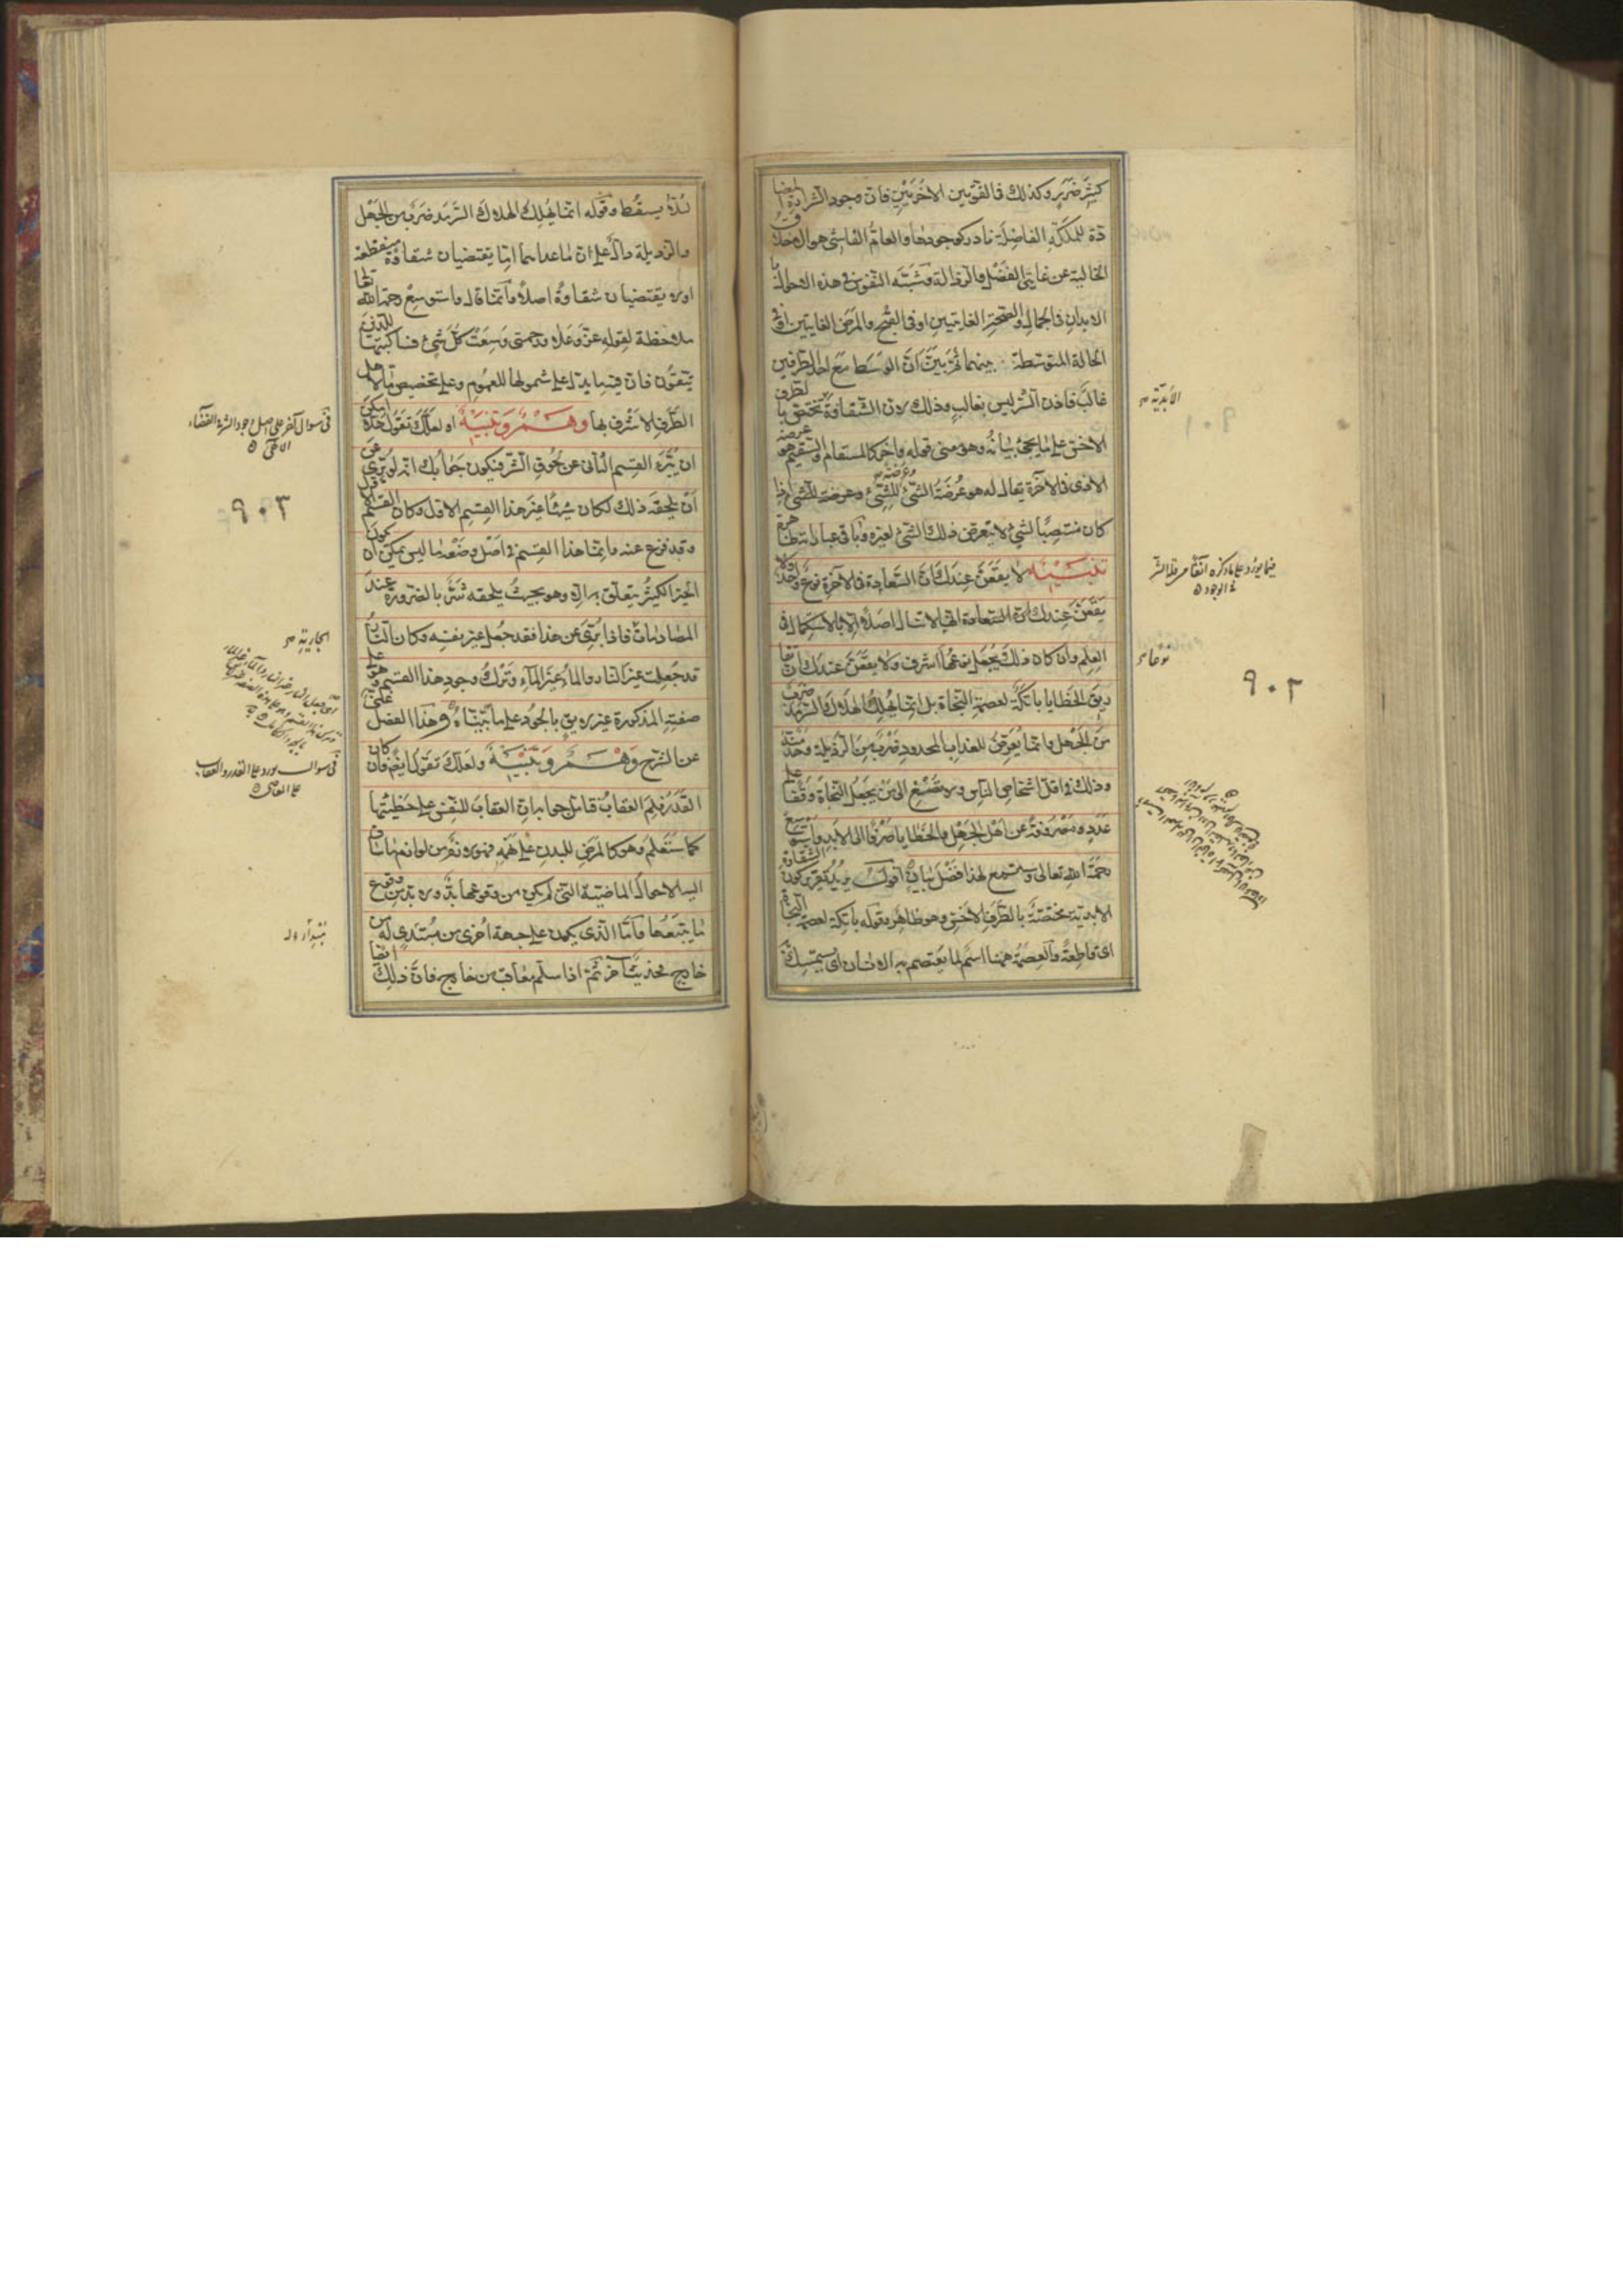 كثير ضرر وكذلك في القوتين الاخريين فان وجود الشرارة المضا
دة للملكة الفاضلة نادر كوجودها والعام الفاشي هو الاخلاق
الخالية عن غايتي الفضل والرذالة وشبه النفوس في هذه الاحوال با
لابدان في الجمال والصحة الغايتين او في القبح والمرض الغايتين او في
الحالة المتوسطة بينهما ثم بين ان الوسط مع احد الطرفين
غالب فاذن الشر ليس بغالب وذلك لان الشقاوة تختص با لطرف
الاخس على ما يجئ بيانه وهو معنى قوله واخر كالمسقام والسقيم هو عرضة
الاذى في الآخرة يقال له هو عرضة الشئ للشئ وعرضة للشئ اذا
كان منتصبا لشئ لا يتعرض ذلك الشئ لغيره وباقي عباراته ظاهرة
تنبيه لا يقعن عندك ان السعادة في الآخرة نوع واحد ولا
يقعن عندك ان السعادة انها لا تنال اصلا الا بالاستكمال في
العلم وان كان ذلك يجعل نوعها اشرف ولا يقعن عندك ان تفا
ريق الخطايا باتكة لعصمة النجاة بل انما يهلك الهلاك السرمد ضرب
من الجهل وانما يعرض للعذاب المحدود ضرب من الرذيلة وحد منه
وذلك في اقل اشخاص الناس ولا تصغ الى من يجعل النجاة وقفا على
عدد ومصروفة عن اهل الجهل والخطايا صرفا الى الابد واستوسع
رحمة الله تعالى وستسمع لهذا فضل بيان اقول يريد تقرير كون الشقاوة
الابدية مختصة بالطرف الاخس وهو ظاهر وقوله باتكة لعصمة النجاة
اى قاطعة والعصمة ههنا اسم لما يعتصم به الانسان اى يستمسك
الأبدية
فيما يورد على ما ذكره آنفا من قلة الشر
في الوجود
نوعا
٩٠٢
لئلا يسقط وقوله انما يهلك الهلاك السرمد ضرب من الجهل
والرذيلة دال على ان ما عداهما اما يقتضيان شقاوة منقطعة
او لا يقتضيان شقاوة اصلا وانما قال واستوسع رحمة الله تعا
ملاحظة لقوله عز وعلا ورحمتي وسعت كل شئ فساكتبها للذين
يتقون فان فيه ما يدل على شمولها للعموم وعلى تخصيص ما لاهل
الطرف الاشرف بها وهم وتنبيه او لعلك تقول هلا امكن
ان يبرء القسم الثاني عن لحوق الشر فيكون جوابك انه لو برئ عن
ان يلحقه ذلك لكان شيئا غير هذا القسم وكان القسم الاول
وقد فرغ عنه وانما هذا القسم في اصل وضعه مما ليس يمكن ان يكون
الخير الكثير يتعلق به الا وهو بحيث يلحقه شر بالضرورة عند
المصادمات فاذا برئ عن هذا فقد جعل غير نفسه وكان النار
قد جعلت غير النار والماء غير الماء وترك وجود هذا القسم وهو على
صفته المذكورة غير لايق بالجود على ما بيناه وهذا الفصل غني
عن الشرح وهم وتنبيه ولعلك تقول ايضا فان كان
القدر فلم العقاب فتامل جوابه ان العقاب للنفس على خطيئتها
كما ستعلم وهو كالمرض للبدن على نهمه فهو لازم من لوازم ما ساق
اليه الاحوال الماضية التي لم يكن من وقوعها بد ولا بد من وقوع
ما يتبعها واما الذى يكون على جهة اخرى من مبتدئ له من
خارج فحديث آخر ثم اذا سلم معاقب من خارج فان ذلك ايضا
في سوال آخر على اصل وجود الشر في القضاء
الالهي
٩٠٣
الجارية
في سوال يورد على القدر والعقاب
على العاصي